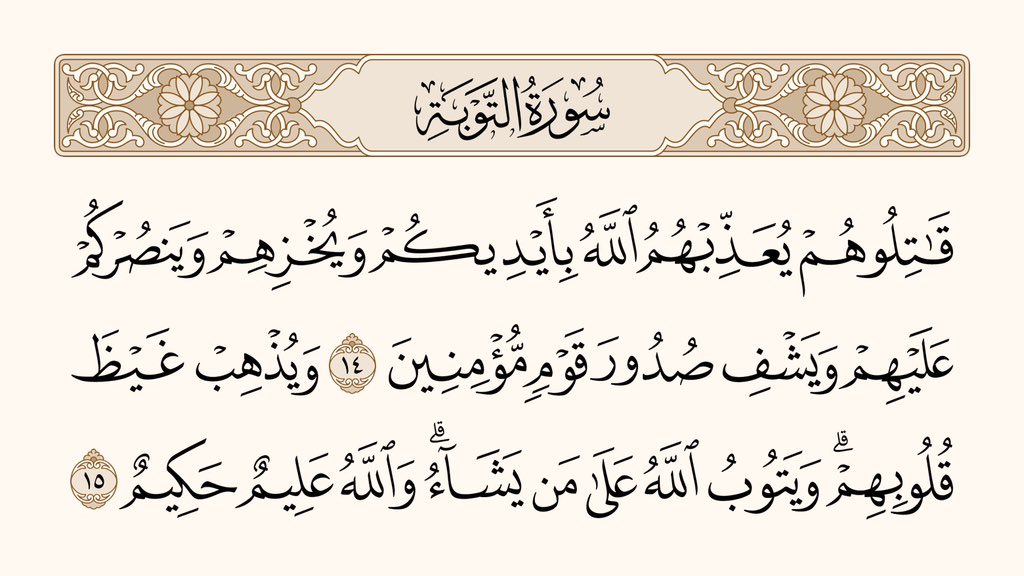 سُورَةُ التَّوْبَةِ
قَـٰتِلُوهُمْ يُعَذِّبْهُمُ ٱللَّهُ بِأَيْدِيكُمْ وَيُخْزِهِمْ وَيَنصُرْكُمْ
عَلَيْهِمْ وَيَشْفِ صُدُورَ قَوْمٍ مُّؤْمِنِينَ ١٤ وَيُذْهِبْ غَيْظَ
قُلُوبِهِمْ ۗ وَيَتُوبُ ٱللَّهُ عَلَىٰ مَن يَشَآءُ ۗ وَٱللَّهُ عَلِيمٌ حَكِيمٌ ١٥